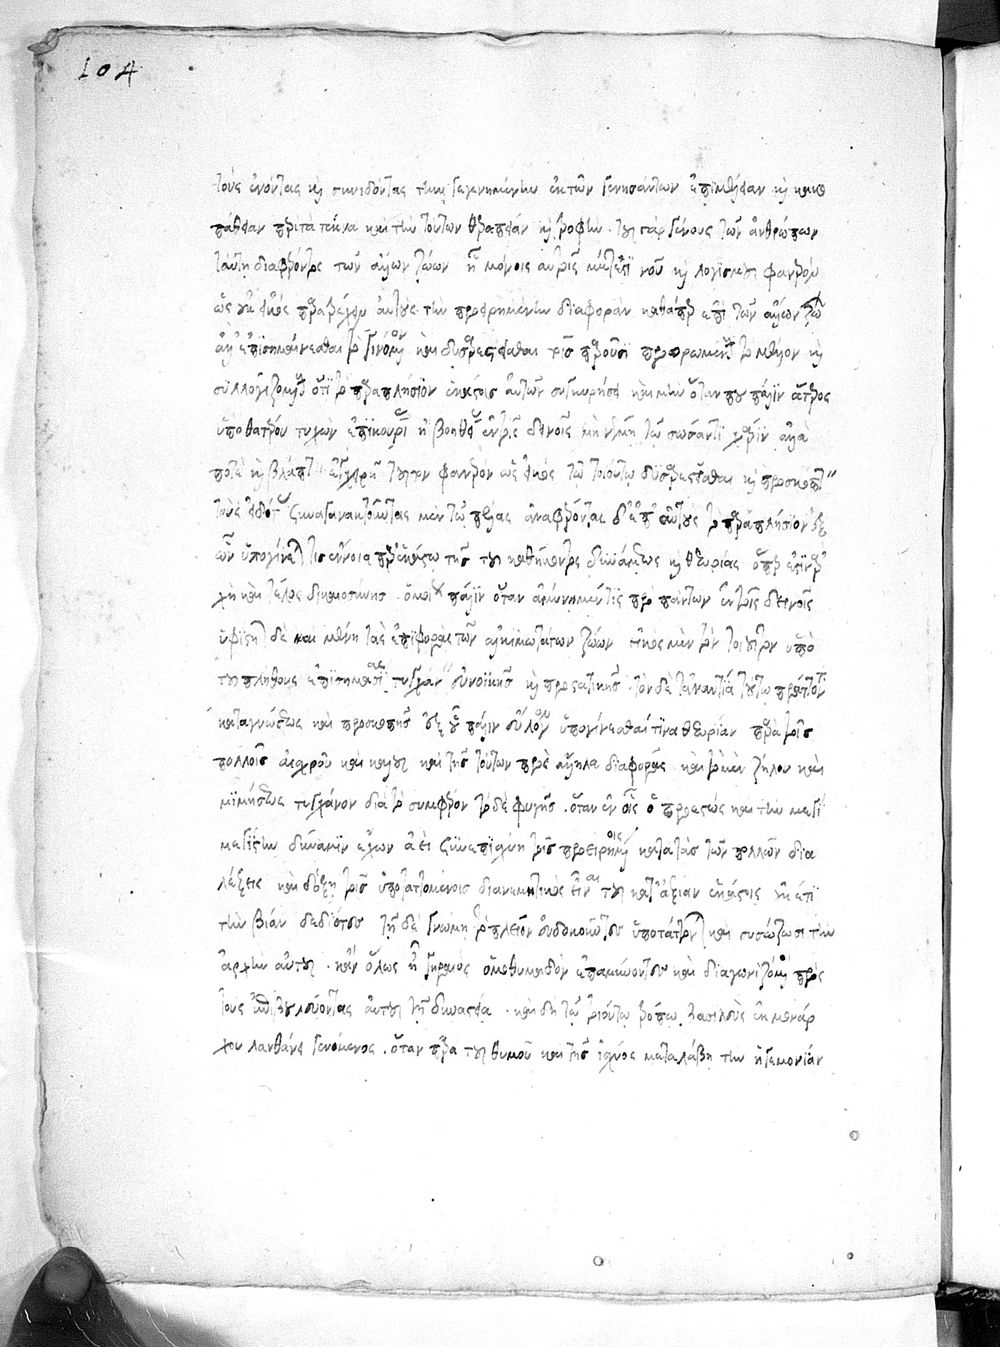 104
τοὺς ὁρῶντας καὶ συνιδόντας τὴν γεγενημένην ἐκ τῶν γεννησάντων ἐπιμέλειαν καὶ κακο
πάθειαν περὶ τὰ τέκνα καὶ τὴν τούτων θεραπείαν καὶ τροφήν. τοῦ γὰρ γένους τῶν ἀνθρώπων
ταύτῃ διαφέροντος τῶν ἄλλων ζώων ᾗ μόνοις αὐτοῖς μέτεστι νοῦ καὶ λογισμοῦ φανερὸν
ὡς οὐκ εἰκὸς παρατρέχειν αὐτοὺς τὴν προειρημένην διαφορὰν καθάπερ ἐπὶ τῶν ἄλλων ζώων
ἀλλ' ἐπισημαίνεσθαι τὸ γινόμενον καὶ δυσαρεστεῖσθαι τοῖς παροῦσι προορωμένους τὸ μέλλον καὶ
συλλογιζομένους ὅτι τὸ παραπλήσιον ἑκάστοις αὐτῶν συγκυρήσει καὶ μὴν ὅταν που πάλιν ἅτερος
ὑπὸ θατέρου τυχὼν ἐπικουρίας ἢ βοηθείας ἐν τοῖς δεινοῖς μὴ νέμῃ τῷ σώσαντι χάριν ἀλλά
ποτὲ καὶ βλάπτειν ἐγχειρῇ τοῦτον φανερὸν ὡς εἰκὸς τῷ τοιούτῳ δυσαρεστεῖσθαι καὶ προσκόπτειν
τοὺς εἰδότας συναγανακτοῦντας μὲν τῷ πέλας ἀναφέροντας δ' ἐπ' αὐτοὺς τὸ παραπλήσιον ἐξ
ὧν ὑπογίνεταί τις ἔννοια παρ' ἑκάστῳ τῆς τοῦ καθήκοντος δυνάμεως καὶ θεωρίας ὅπερ ἐστὶν ἀρ
χὴ καὶ τέλος δικαιοσύνης. ὁμοίως πάλιν ὅταν ἀμύνῃ μέν τις πρὸ πάντων ἐν τοῖς δεινοῖς
ὑφίστηται δὲ καὶ μένῃ τὰς ἐπιφορὰς τῶν ἀλκιμωτάτων ζώων εἰκὸς μὲν τὸν τοιοῦτον ὑπὸ
τοῦ πλήθους ἐπισημασίας τυγχάνειν εὐνοϊκῆς καὶ προστατικῆς. τὸν δὲ τἀναντία τούτῳ πράττοντα
καταγνώσεως καὶ προσκοπῆς ἐξ οὗ πάλιν εὔλογον ὑπογίνεσθαί τινα θεωρίαν παρὰ τοῖς
πολλοῖς αἰσχροῦ καὶ καλοῦ καὶ τῆς τούτων πρὸς ἄλληλα διαφορᾶς καὶ τὸ μὲν ζήλου καὶ
μιμήσεως τυγχάνον διὰ τὸ συμφέρον τὸ δὲ φυγῆς. ὅταν ἐν οἷς ὁ προεστὼς καὶ τὴν μεγί
μεγίστην δύναμιν ἔχων ἀεὶ συνεπισχύῃ τοῖς προειρημένοις κατὰ τὰς τῶν πολλῶν δια
λήξεις καὶ δόξῃ τοῖς ὑποταττομένοις διανεμητικὸς εἶναι τοῦ κατ' ἀξίαν ἑκάστοις οὐκέτι
τὴν βίαν δεδιότες τῇ δὲ γνώμῃ τὸ πλεῖον εὐδοκοῦντες ὑποτάττονται καὶ συσώζωσι τὴν
ἀρχὴν αὐτοῦ. κἂν ὅλως ᾖ γηραιὸς ὁμοθυμαδὸν ἐπαμύνοντες καὶ διαγωνιζόμενοι πρὸς
τοὺς ἐπιβουλεύοντας αὐτοῦ τῇ δυναστείᾳ. καὶ δὴ τῷ τοιούτῳ τρόπῳ βασιλεὺς ἐκ μονάρ
χου λανθάνει γενόμενος. ὅταν παρὰ τοῦ θυμοῦ καὶ τῆς ἰσχύος μεταλάβῃ τὴν ἡγεμονίαν